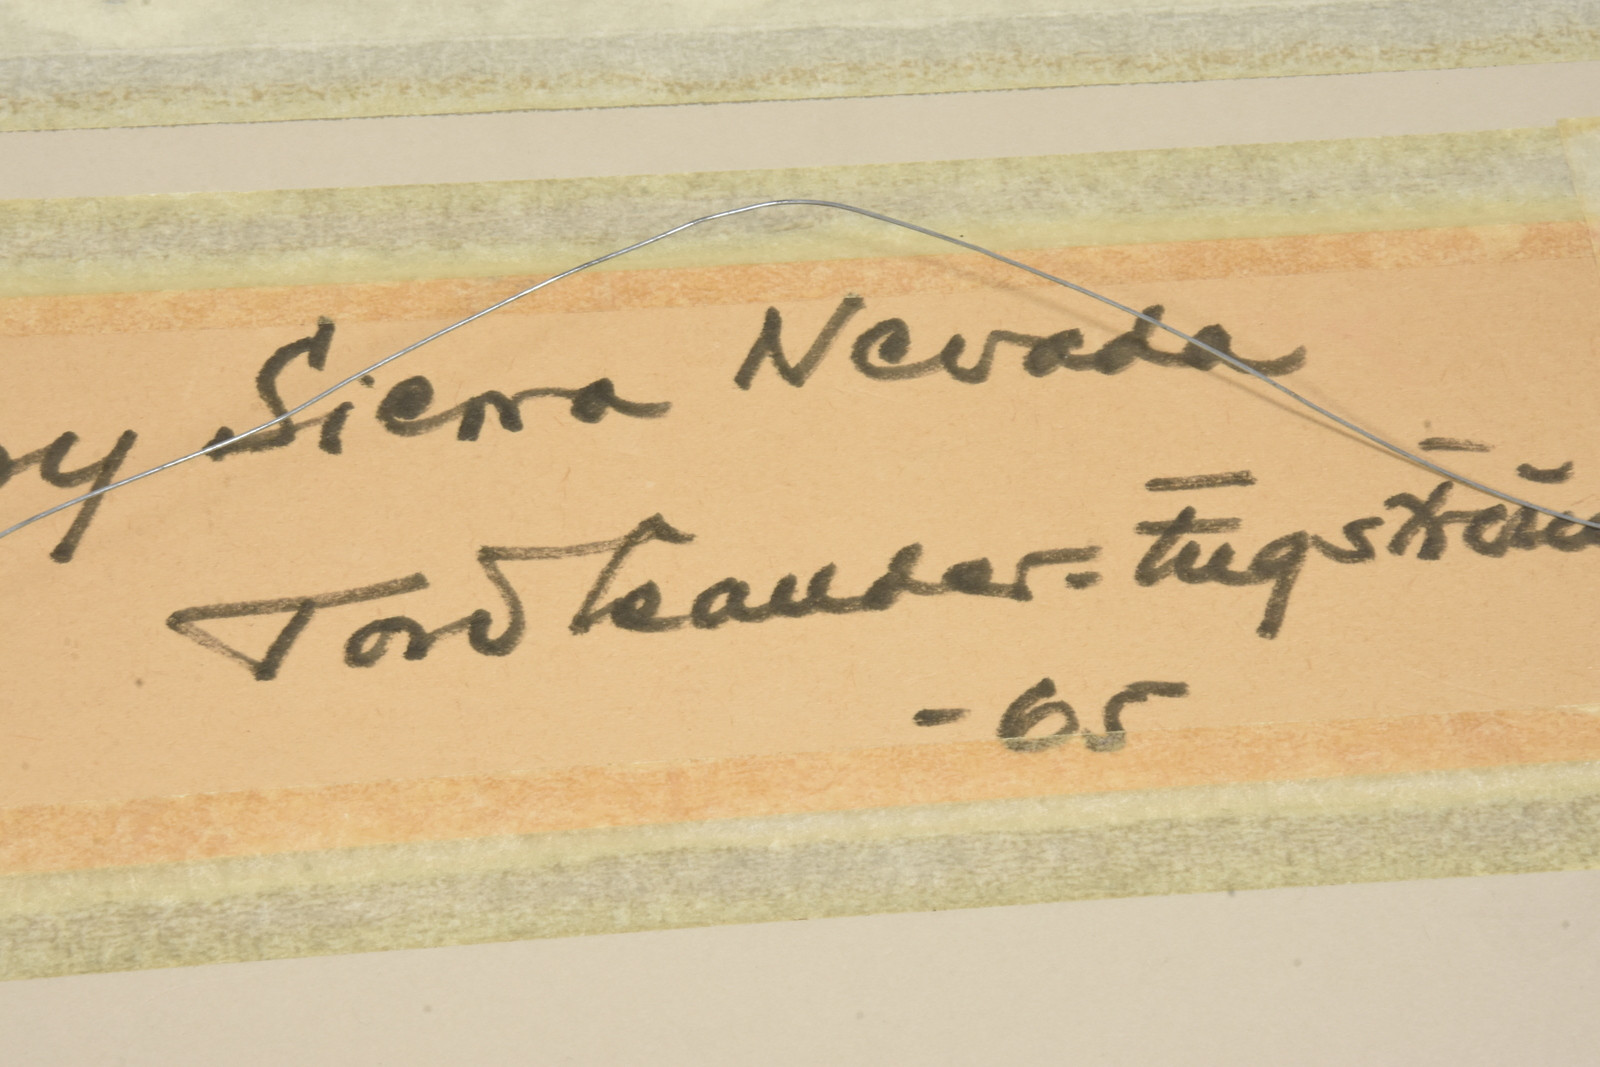 Sierra Nevada
Tord Leander-Engström
-65